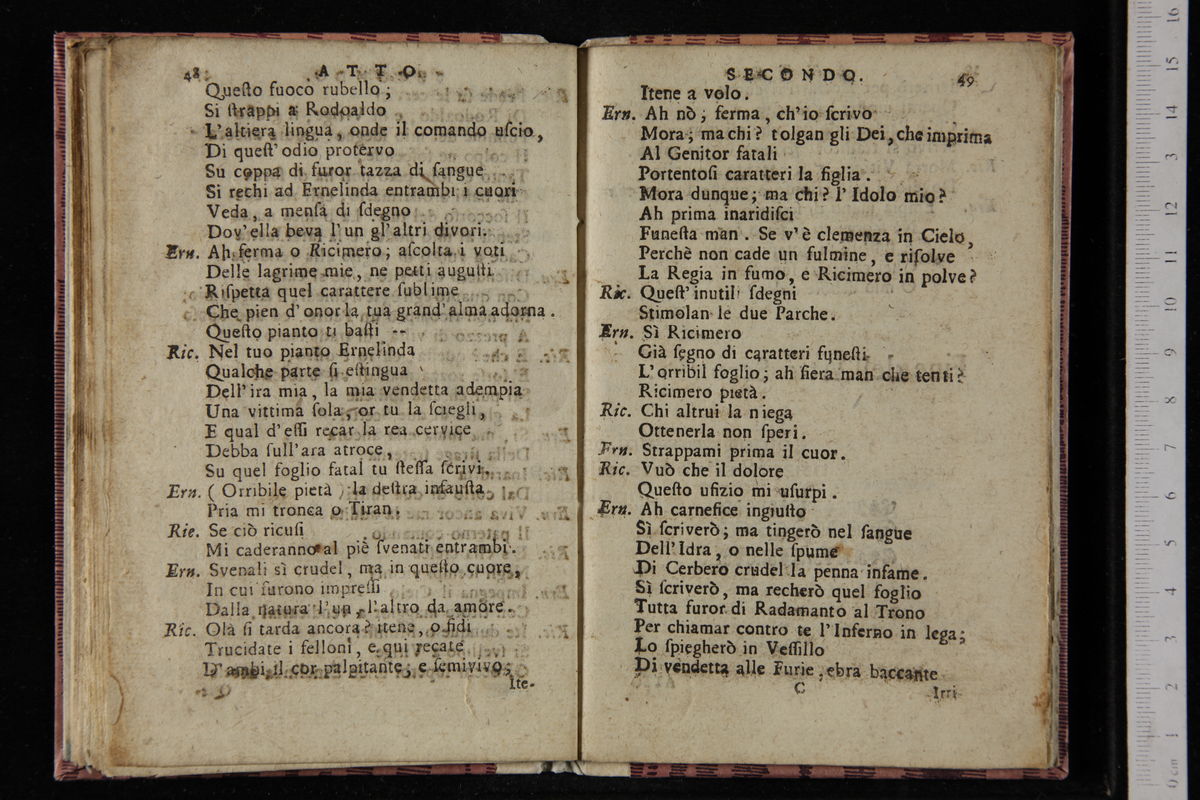 48 ATTO.
Queſto fuoco rubello;
Si ſtrappi a Rodoaldo
L'altiera lingua, onde il comando uſcìo,
Di queſt'odio protervo
Su coppa di furor tazza di ſangue
Si rechi ad Ernelinda entrambi i cuori
Veda, a menſa di ſdegno
Dov'ella beva l'un gl'altri divori.
Ern. Ah ferma o Ricimero; aſcolta i voti
Delle lagrime mie, ne petti auguſti
Riſpetta quel carattere ſublime
Che pien d'onor la tua grand'alma adorna.
Queſto pianto ti baſti --
Ric. Nel tuo pianto Ernelinda
Qualche parte ſi eſtingua
Dell'ira mia, la mia vendetta adempia
Una vittima ſola, or tu la ſciegli,
E qual d'eſſi recar la rea cervice
Debba ſull'ara atroce,
Su quel foglio fatal tu ſteſſa ſcrivi.
Ern. (Orribile pietà) la deſtra infauſta
Pria mi tronca o Tiran.
Rie. Se ciò ricuſi
Mi caderanno al piè ſvenati entrambi.
Ern. Svenali sì crudel, ma in queſto cuore,
In cui furono impreſſi
Dalla natura l'un, l'altro da amore.
Ric. Olà ſi tarda ancora? itene, o fidi
Trucidate i felloni, e qui recate
D'ambi il cor palpitante; e ſemivivo;
Ite-
SECONDO. 49
Itene a volo.
Ern. Ah nò; ferma, ch'io ſcrivo
Mora; ma chi? tolgan gli Dei, che imprima
Al Genitor fatali
Portentoſi caratteri la figlia.
Mora dunque; ma chi? l'Idolo mio?
Ah prima inaridiſci
Funeſta man. Se v'è clemenza in Cielo,
Perchè non cade un fulmine, e riſolve
La Regia in fumo, e Ricimero in polve?
Ric. Queſt'inutili ſdegni
Stimolan le due Parche.
Ern. Sì Ricimero
Già ſegno di caratteri funeſti
L'orribil foglio; ah fiera man che tenti?
Ricimero pietà.
Ric. Chi altrui la niega
Ottenerla non ſperi.
Ern. Strappami prima il cuor.
Ric. Vuò che il dolore
Queſto ufizio mi uſurpi.
Ern. Ah carnefice ingiuſto
Sì ſcriverò; ma tingerò nel ſangue
Dell'Idra, o nelle ſpume
Di Cerbero crudel la penna infame.
Sì ſcriverò, ma recherò quel foglio
Tutta furor di Radamanto al Trono
Per chiamar contro te l'Inferno in lega;
Lo ſpiegherò in Veſſillo
Di vendetta alle Furie, ebra baccante
C Irri-